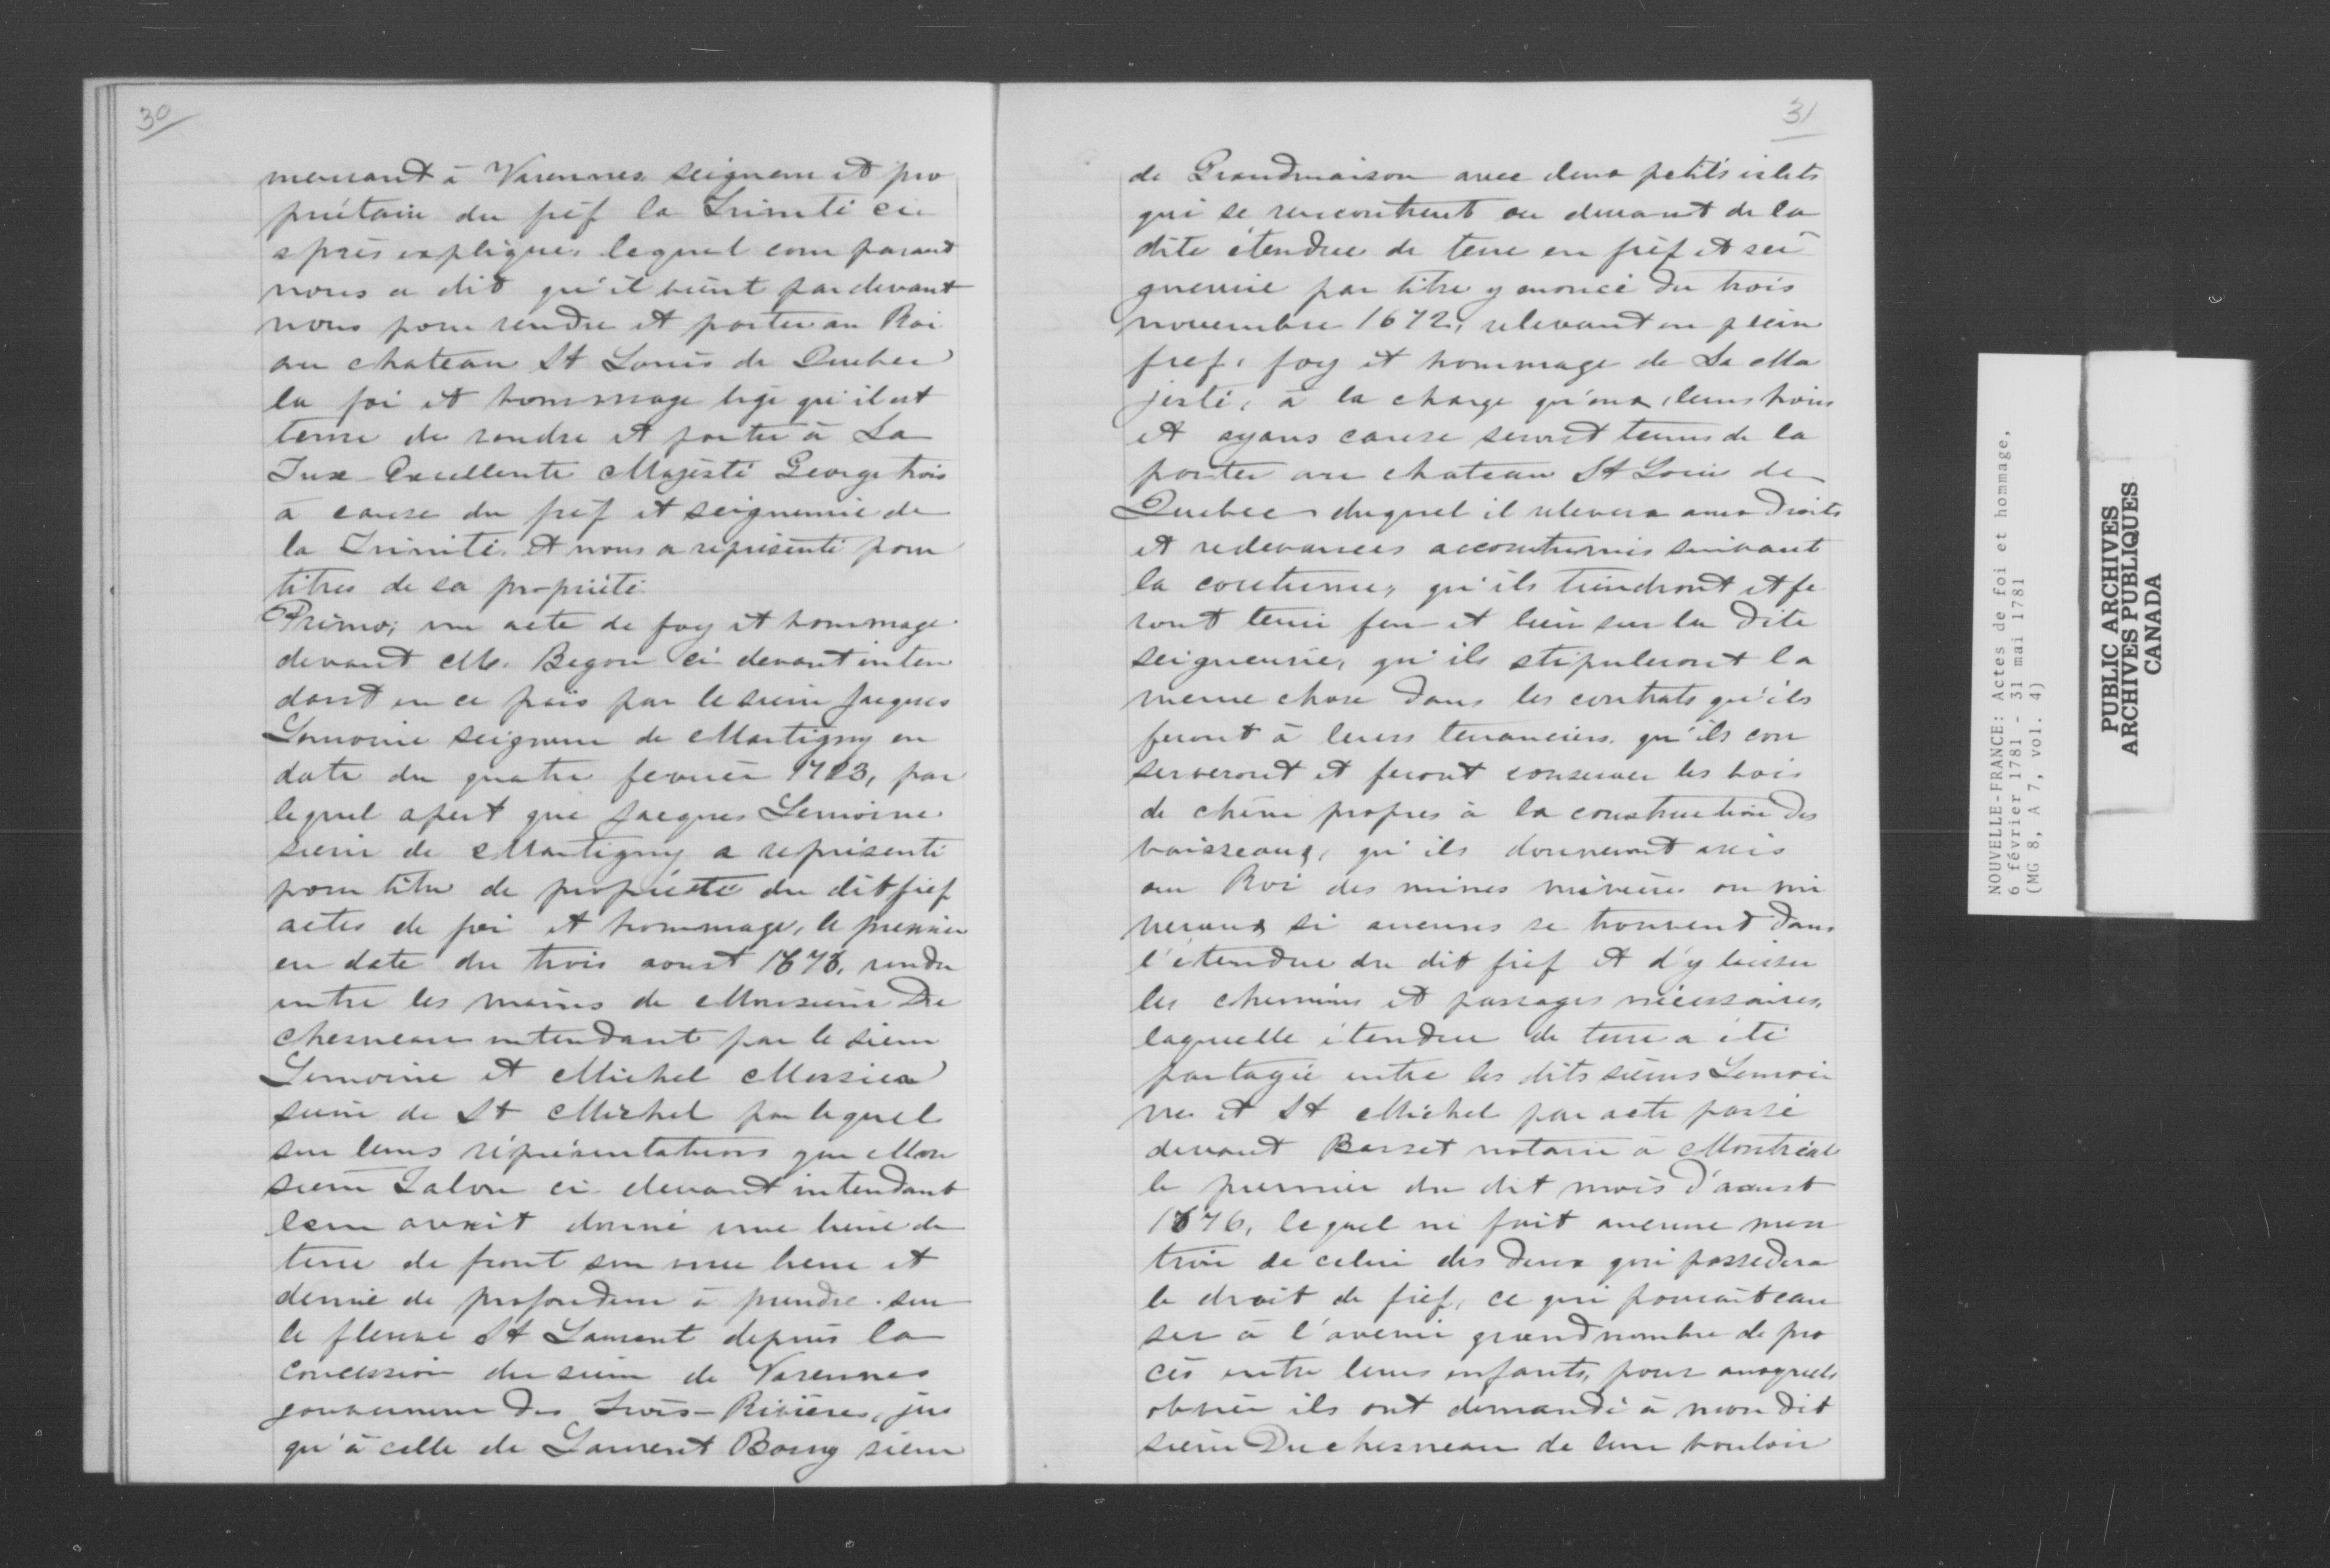 30
meurant à Varennes seigneur et pro
priétaire du fief la Trinité ci
après expliqué, lequel comparant
nous a dit qu'il vient pardevant
nous pour rendre et porter au Roi
au chateau St Louis de Quebec
la foi et hommage lige qu'il est
tenu de rendre et porter à Sa
Trèx Excellente Majesté George trois
à cause du fief et seigneurie de
la Trinité, et nous a représenté pour
titres de sa propriété.
Primo; un acte de foy et hommage
devant M. Begon ci devant inten
dant en ce païs par le sieur Jacques
Lemoine seigneur de Martigny en
date du quatre fevrier 1723, par
lequel apert que Jacques Lemoine
sieur de Martigny a représenté
pour titre de propriété du dit fief
actes de foi et hommage, le premier
en date du trois aoust 1676, rendu
entre les mains de Monsieur Du
chesneau intendant par le sieur
Lemoine et Michel Messier
sieur de St Michel par lequel
sur leurs réprésentations que Mon
sieur Talon ci devant intendant
leur avait donné une lieue de
terre de front sur une lieue et
demie de profondeur à prendre sur
le fleuve St Laurent depuis la
concession du sieur de Varennes
gouverneur des Trois-Rivières, jus
qu'à celle de Laurent Borny sieur
31
de Grandmaison avec deux petits islets
qui se rencontrent au devant de la
dite étendue de terre en fief et sei
gneurie par titre y enoncé du trois
novembre 1672, relevant en plein
fief, foy et hommage de Sa Ma
jesté, à la charge qu'eux, leurs hoirs
et ayans cause seront tenus de la
porter au chateau St Louis de
Quebec duquel il relevera aux droits
et redevances accoutumés suivant
la coutume, qu'ils tiendront et fe
ront tenir feu et lieu sur la dite
seigneurie, qu'ils stipuleront la
meme chose dans les contrats qu'ils
feront à leurs tenanciers, qu'ils con
serveront et feront conserver les bois
de chêne propres à la construction des
vaisseaux, qu'ils donneront avis
au Roi des mines minières ou mi
neraux si aucunes se trouvent dans
l'étendue du dit fief et d'y laisser
les chemins et passages nécessaires,
laquelle étendue de terre a été
partagée entre les dits sieurs Lemoi
ne et St Michel par acte passé
devant Basset notaire à Montréal
le premier du dit mois d'aoust
1676, lequel ne fait aucune men
tion de celui des deux qui possedera
le droit de fief, ce qui pourait cau
ser à l'avenir grand nombre de pro
cès entre leurs enfants, pour auxquels
obvier ils ont demandé à mon dit
sieur Duchesneau de leur vouloir
NOUVELLE-FRANCE: Actes de foi et hommage,
6 février 1781 - 31 mai 1781
(MG 8, A 7, vol. 4)
PUBLIC ARCHIVES
ARCHIVES PUBLIQUES
CANADA